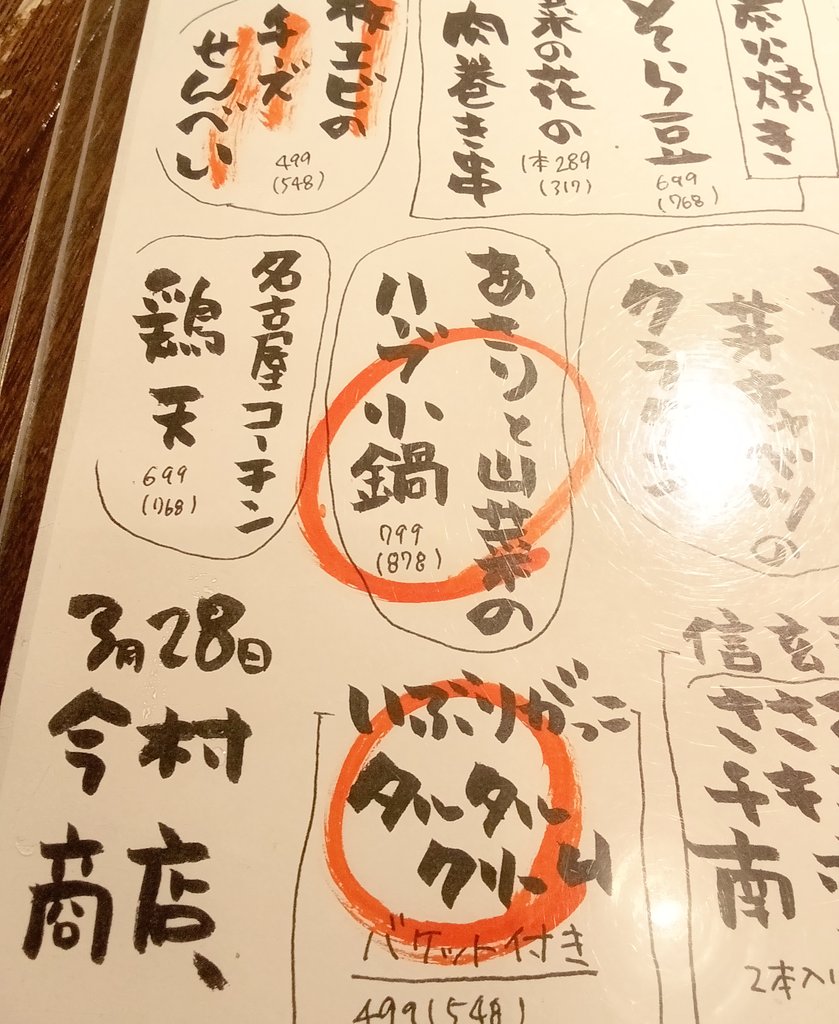 炭火焼き
そら豆
699
(768)
菜の花の
肉巻き串
1本289
(317)
桜エビの
チーズ
せんべい
499
(548)
芽キャベツの
グラタン
あさりと山菜の
ハーブ小鍋
799
(878)
名古屋コーチン
鶏天
699
(768)
信玄
ささ
チキ
南
2本入り
いぶりがっこ
タルタル
クリーム
バケット付き
499(548)
3月28日
今村
商店、